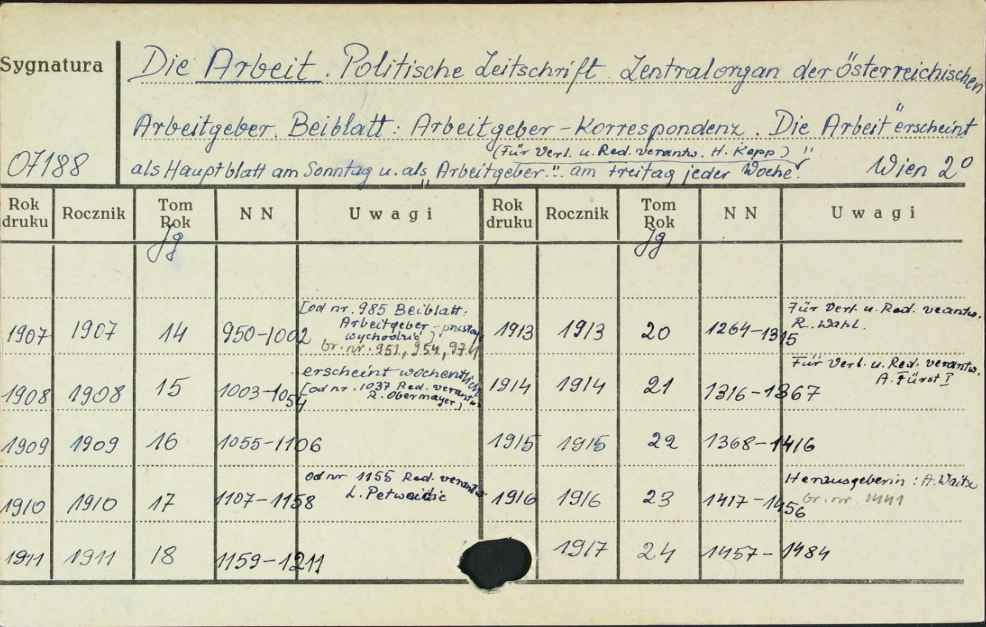 Sygnatura
Die Arbeit. Politische Zeitschrift. Zentralorgan der österreichischen
Arbeitgeber. Beiblatt: Arbeitgeber-Korrespondenz. „Die Arbeit" erscheint
(Für Verl. u. Red. verantw. H. Kopp)
07188 als Hauptblatt am Sonntag u. als „Arbeitgeber..." am Freitag jeder Woche. Wien 2°
Rok druku Rocznik Tom Rok Jg NN Uwagi Rok druku Rocznik Tom Rok Jg NN Uwagi
1907 1907 14 950-1002 [od nr. 985 Beiblatt: Arbeitgeber- wychodzić] br. nr. 951, 954, 974 1913 1913 20 1264-1315 Für Verl. u. Red. verantw. R. Wahl.
1908 1908 15 1003-1054 erscheint wochentlich [od nr. 1037 Red. verantw. R. Obermayer] 1914 1914 21 1316-1367 Für Verl. u. Red. verantw. A. Fürst
1909 1909 16 1055-1106 1915 1915 22 1368-1416
1910 1910 17 1107-1158 od nr 1155 Red. verantw. L. 1916 1916 23 1417-1456 Herausgeberin: A. Waitz br. nr. 1441
1911 1911 18 1159-1211 1917 24 1457-1484